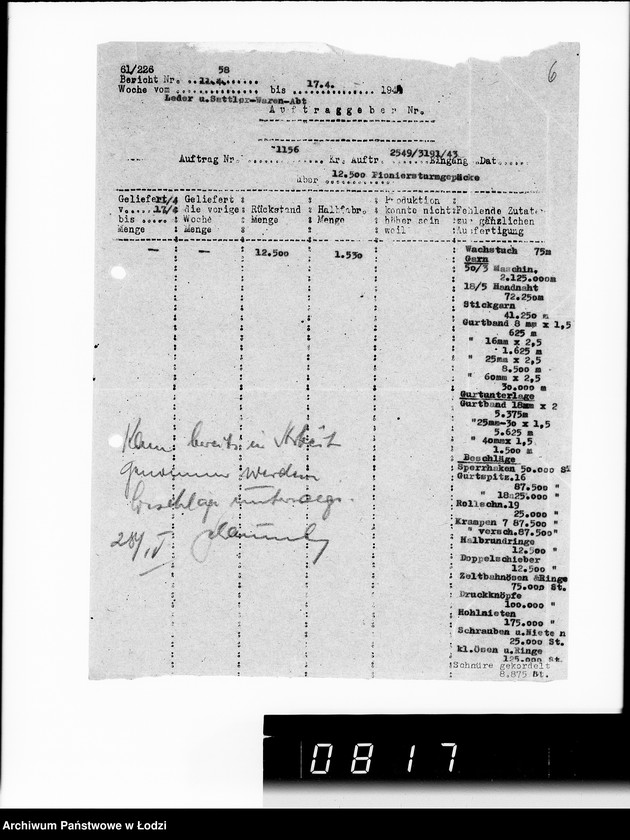 6
61/226
Bericht Nr. 58
Woche vom 11.4. bis 17.4. 194
Leder u.Sattler-Waren-Abt
Auftraggeber Nr.
Auftrag Nr. 1156 Kr. Auftr. 2549/3191/43 Eingang Dat.
über 12.500 Pioniersturmgepäcke
Geliefert Geliefert Produktion
v. 11/4 die vorige Rückstand Halbfabr. konnte nicht Fehlende Zutat
bis 17/4 Woche Menge Menge höher sein zur gänzlichen
Menge Menge weil Ausfertigung
— — 12.500 1.530
Wachstuch 75m
Garn
50/3 Maschin.
2.125.000m
18/5 Handnaht
72.250m
Stickgarn
41.250 m
Gurtband 8 mm x 1,5
625 m
" 16mm x 2,5
1.625 m
" 25mm x 2,5
8.500 m
" 60mm x 2,5
30.000 m
Gurtunterlage
Gurtband 18mm x 2
5.375m
"25mm-30 x 1,5
5.625 m
" 40mmx 1,5
1.500 m
Beschläge
Sperrhaken 50.000 St
Gurtspitz.16
87.500 "
" 18a25.000 "
Rollschn.19
25.000 "
Krampen 7 87.500 "
" versch.87.500"
Halbrundringe
12.500 "
Doppelschieber
12.500 "
Zeltbahnösen &Ringe
75.000 St.
Druckknöpfe
100.000 "
Hohlnieten
175.000 "
Schrauben u.Nieten
25.000 St.
kl.Ösen u.Ringe
125.000 St.
Schnüre gekordelt
8.875 St.
Kann bereits in Arbeit
genommen werden
Beschläge unterwegs.
28/IV
0817
Archiwum Państwowe w Łodzi